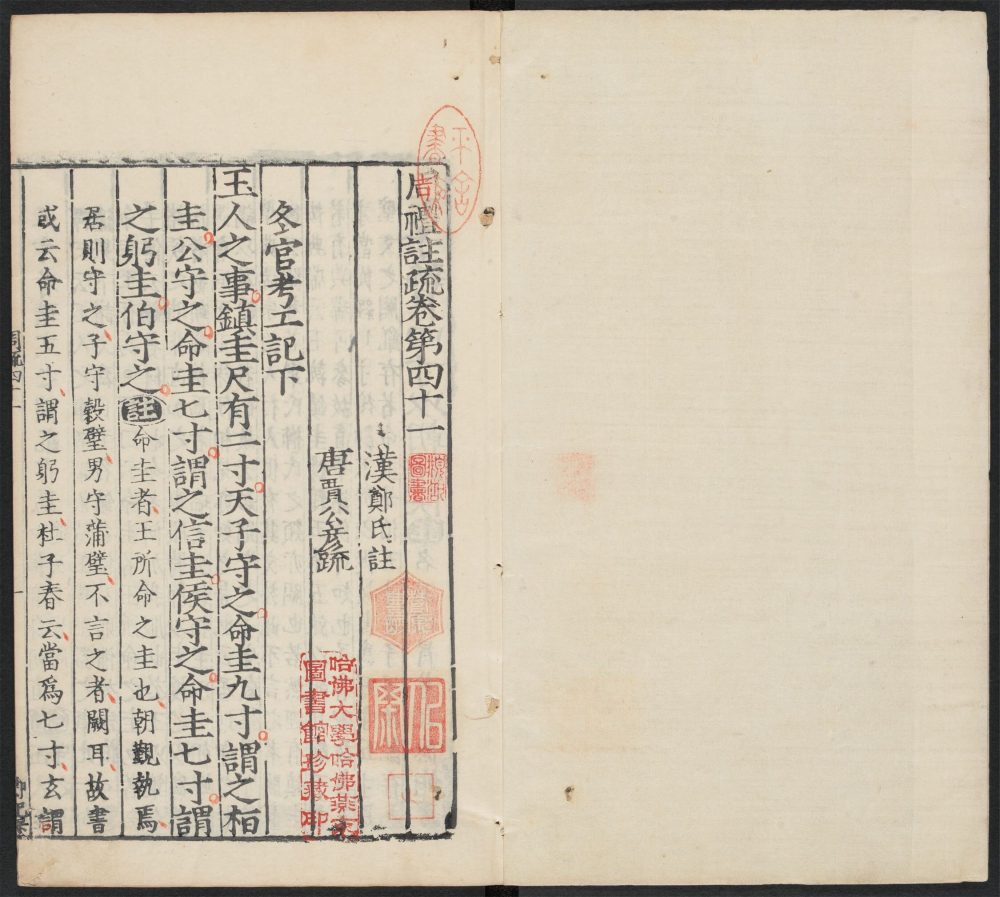 周禮註疏卷第四十一
漢鄭氏註
唐賈公彦疏
冬官考工記下
玉人之事鎮圭尺有二寸天子守之命圭九寸謂之桓
圭公守之命圭七寸謂之信圭侯守之命圭七寸謂
之躬圭伯守之註命圭者王所命之圭也朝觀執焉
居則守之子守穀璧男守蒲璧不言之者闕耳故書
或云命圭五寸謂之躬圭杜子春云當爲七寸玄謂
哈佛大學哈佛燕京
圖書館珍藏印